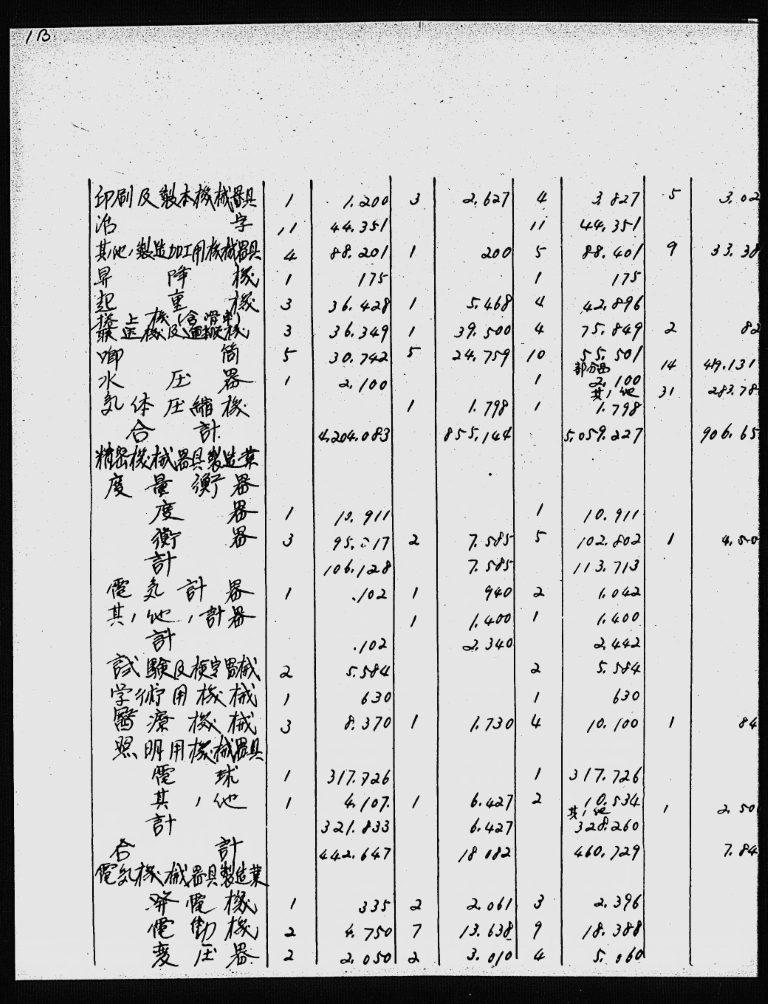 1B
印刷及製本機械器具 1 1.200 3 2.627 4 3.827 5 3.02
冶 字 11 44.351 11 44.351
其ノ他ノ製造加工用機械器具 4 88.201 1 200 5 88.401 9 33.38
昇降機 1 175 1 175
起重機 3 36.428 1 5.468 4 42.896
3 36.349 1 39.500 4 75.849 2 82
喞筒 5 30.742 5 24.759 10 55.501
14 419.131
水圧器 1 2.100 1 2.100
其ノ他 31 283.78
気体圧縮機 1 1.798 1 1.798
合計 4.204.083 855.144 5.059.227 906.65
精密機械器具製造業
度量衡器
度器 1 10.911 1 10.911
衡器 3 95.217 2 7.585 5 102.802 1 4.50
計 106.128 7.585 113.713
電気計器 1 .102 1 940 2 1.042
其ノ他ノ計器 1 1.400 1 1.400
計 .102 2.340 2.442
試験及検定器械 2 5.584 2 5.584
学術用機械 1 630 1 630
醫療機械 3 8.370 1 1.730 4 10.100 1 84
照明用機械器具
電球 1 317.726 1 317.726
其ノ他 1 4.107. 1 6.427 2 10.534
其ノ他 1 2.50
計 321.833 6.427 328.260
合計 442.647 18.082 460.729 7.84
電気機械器具製造業
発電機 1 335 2 2.061 3 2.396
電動機 2 4.750 7 13.638 9 18.388
変圧器 2 2.050 2 3.010 4 5.060